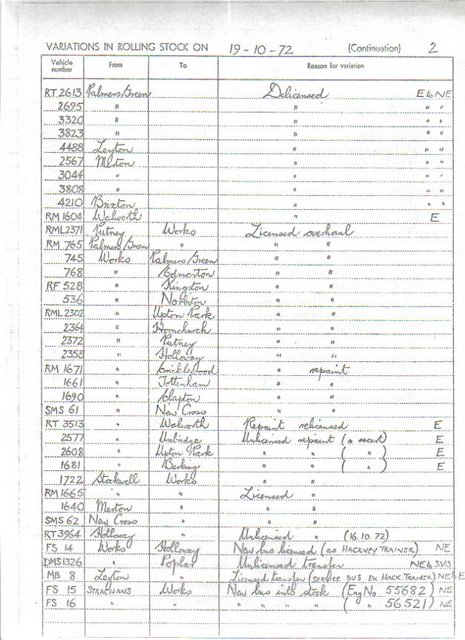 VARIATIONS IN ROLLING STOCK ON 19-10-72 (Continuation) 2
Vehicle number From To Reason for variation
RT 2613 Palmers Green Delicensed E b NE
2695 " " " "
3320 " " " "
3823 " " " "
4488 Leyton " " "
2567 Merton " " "
3044 " " " "
3808 " " " "
4210 Brixton " " "
RM 1604 Walworth " E
RML 2371 Putney Works Licensed overhaul
RM 765 Palmers Green " " "
745 Works Palmers Green " "
768 " Edmonton " "
RF 528 " Kingston " "
536 " Norbiton " "
RML 2302 " Upton Park " "
2364 " Hornchurch " "
2372 " Putney " "
2358 " Holloway " "
RM 1671 " Cricklewood " repaint
1661 " Tottenham " "
1690 " Clapton " "
SMS 61 " New Cross " "
RT 3513 " Walworth Repaint relicensed E
2577 " Uxbridge Unlicensed repaint (a recert) E
2608 " Upton Park " " ( " ) E
1681 " Barking " " ( " ) E
1722 Stockwell Works " "
RM 1665 " " Licensed "
1640 Merton " " "
SMS 62 New Cross " " "
RT 3964 Holloway " Unlicensed " (16.10.72)
FS 14 Works Holloway New bus licensed (as HACKNEY TRAINER) NE
DMS 1326 " Poplar Unlicensed transfer NE b SVS
MB 8 Leyton " Licensed transfer (SERVICE BUS EX HACK. TRAINER) NE b E
FS 15 STRACHANS Works New bus into stock (Eng No 55682) NE
FS 16 " " " " " " ( " " 56521) NE